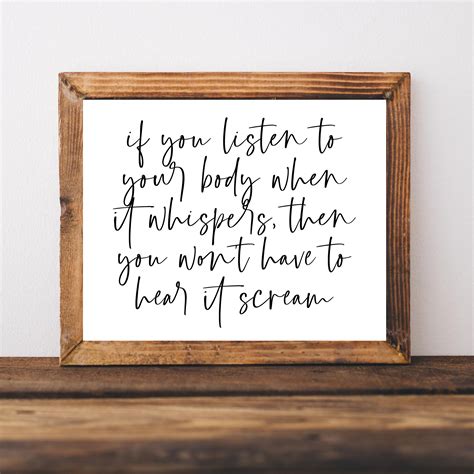 if you listen to
your body when
it whispers, then
you won't have to
hear it scream